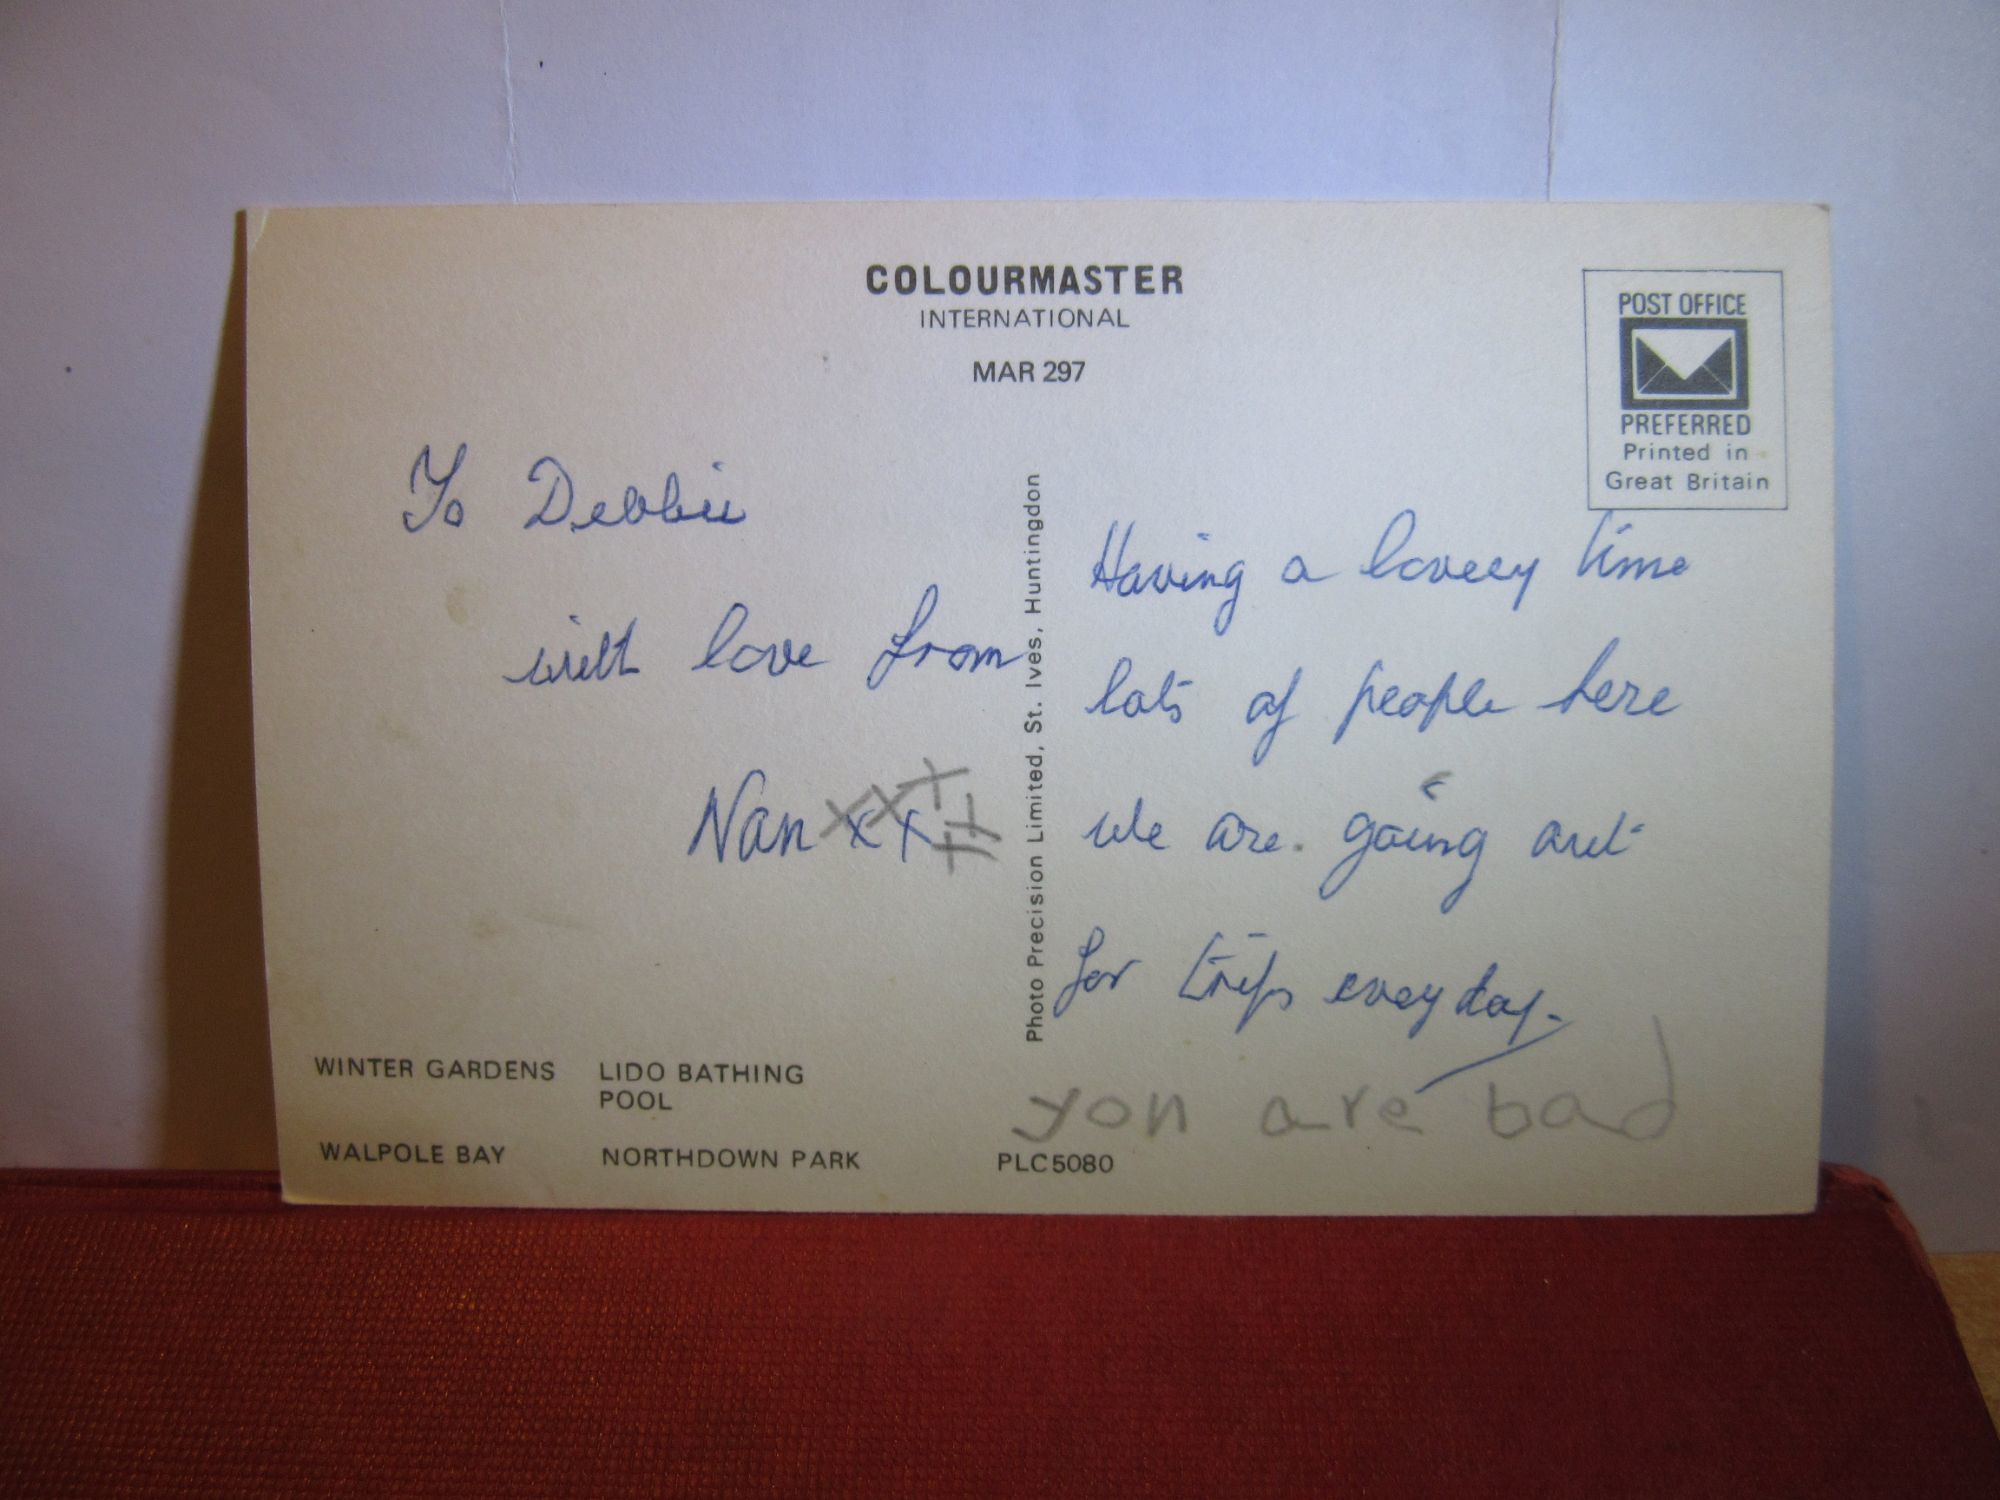 COLOURMASTER
INTERNATIONAL
MAR 297
POST OFFICE
PREFERRED
Printed in
Great Britain
To Debbie
with love from
Nan xxxxxxx
Photo Precision Limited, St. Ives, Huntingdon
Having a lovely time
lots of people here
we are. going out
for trips everyday.
you are bad
WINTER GARDENS
LIDO BATHING
POOL
WALPOLE BAY
NORTHDOWN PARK
PLC5080